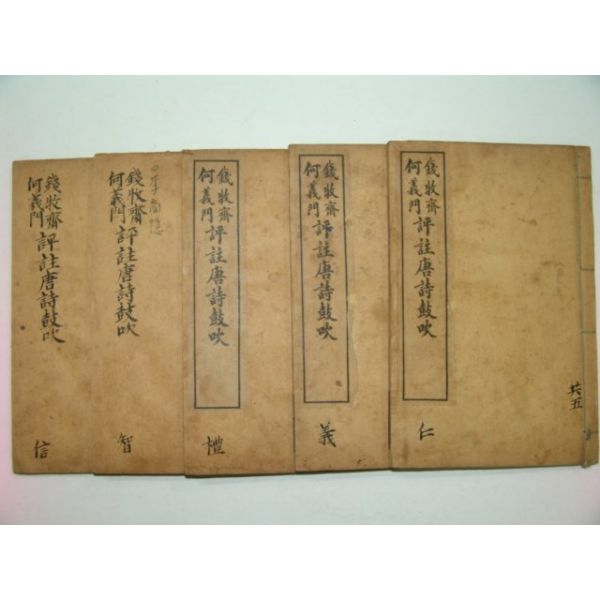 錢牧齋
何義門
評註唐詩鼓吹
仁
共五
錢牧齋
何義門
評註唐詩鼓吹
義
錢牧齋
何義門
評註唐詩鼓吹
禮
錢牧齋
何義門
評註唐詩鼓吹
智
錢牧齋
何義門
評註唐詩鼓吹
信